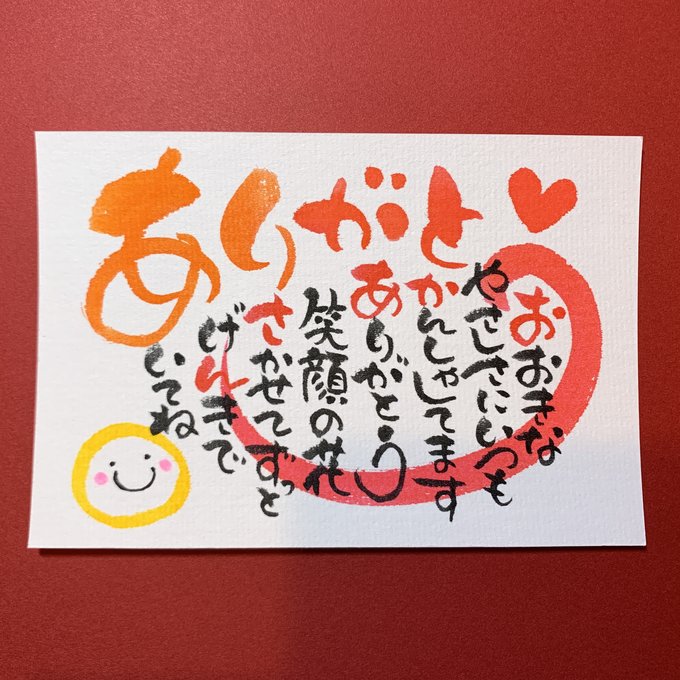 ありがとう
おおきな
やさしさにいつも
かんしゃしてます
ありがとう
笑顔の花
さかせてずっと
げんきで
いてね